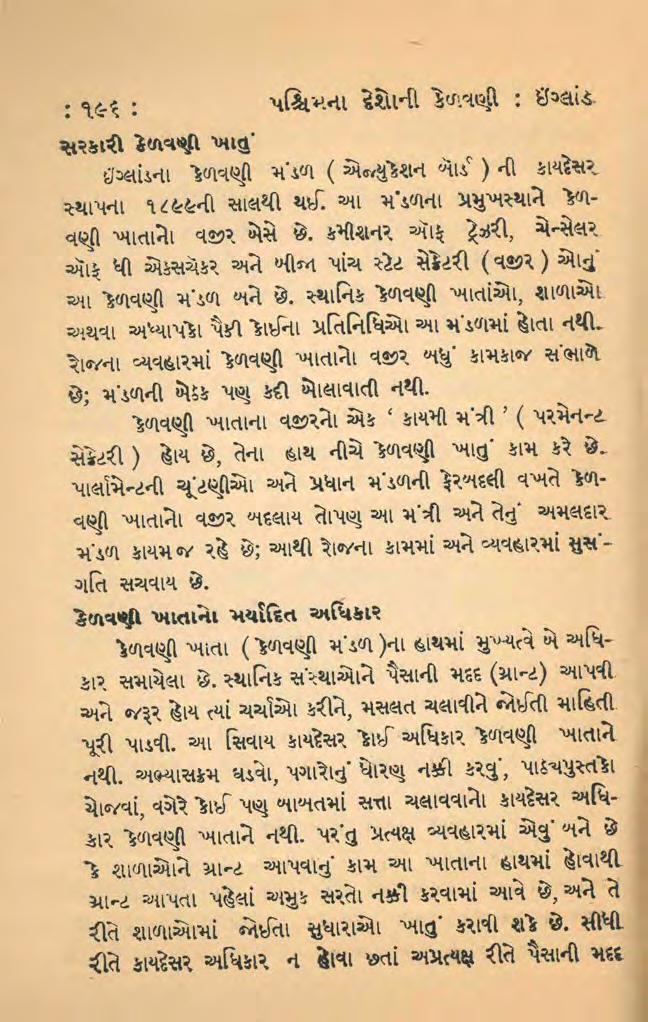 : ૧૯૬ :
પશ્ચિમના દેશોની કેળવણી : ઈંગ્લાંડ
સરકારી કેળવણી ખાતું
ઇંગ્લાંડના કેળવણી મંડળ ( એજ્યુકેશન બૉર્ડ ) ની કાયદેસર
સ્થાપના ૧૮૯૯ની સાલથી થઈ. આ મંડળના પ્રમુખસ્થાને કેળ-
વણી ખાતાનો વજીર બેસે છે. કમીશનર ઑફ ટ્રેઝરી, ચેન્સેલર
ઑફ ધી એકસચૅકર અને બીજા પાંચ સ્ટેટ સેક્રેટરી (વજીર ) ઓનું
આ કેળવણી મંડળ બને છે. સ્થાનિક કેળવણી ખાતાંઓ, શાળાઓ
અથવા અધ્યાપકો પૈકી કોઈના પ્રતિનિધિઓ આ મંડળમાં હોતા નથી.
રોજના વ્યવહારમાં કેળવણી ખાતાનો વજીર બધું કામકાજ સંભાળે
છે; મંડળની બેઠક પણ કદી બોલાવાતી નથી.
કેળવણી ખાતાના વજીરનો એક ‘ કાયમી મંત્રી ’ ( પરમેનન્ટ
સેક્રેટરી ) હોય છે, તેના હાથ નીચે કેળવણી ખાતું કામ કરે છે.
પાર્લામેન્ટની ચૂંટણીઓ અને પ્રધાન મંડળની ફેરબદલી વખતે કેળ-
વણી ખાતાનો વજીર બદલાય તોપણ આ મંત્રી અને તેનું અમલદાર
મંડળ કાયમ જ રહે છે; આથી રોજના કામમાં અને વ્યવહારમાં સુસં-
ગતિ સચવાય છે.
કેળવણી ખાતાનો મર્યાદિત અધિકાર
કેળવણી ખાતા ( કેળવણી મંડળ )ના હાથમાં મુખ્યત્વે બે અધિ-
કાર સમાયેલા છે. સ્થાનિક સંસ્થાઓને પૈસાની મદદ (ગ્રાન્ટ) આપવી
અને જરૂર હોય ત્યાં ચર્ચાઓ કરીને, મસલત ચલાવીને જોઈતી માહિતી
પૂરી પાડવી. આ સિવાય કાયદેસર કોઈ અધિકાર કેળવણી ખાતાને
નથી. અભ્યાસક્રમ ઘડવો, પગારોનું ધોરણ નક્કી કરવું, પાઠ્યપુસ્તકો
યોજવાં, વગેરે કોઈ પણ બાબતમાં સત્તા ચલાવવાનો કાયદેસર અધિ-
કાર કેળવણી ખાતાને નથી. પરંતુ પ્રત્યક્ષ વ્યવહારમાં એવું બને છે
કે શાળાઓને ગ્રાન્ટ આપવાનું કામ આ ખાતાના હાથમાં હોવાથી
ગ્રાન્ટ આપતા પહેલાં અમુક સરતો નક્કી કરવામાં આવે છે, અને તે
રીતે શાળાઓમાં જોઈતા સુધારાઓ ખાતું કરાવી શકે છે. સીધી
રીતે કાયદેસર અધિકાર ન હોવા છતાં અપ્રત્યક્ષ રીતે પૈસાની મદદ